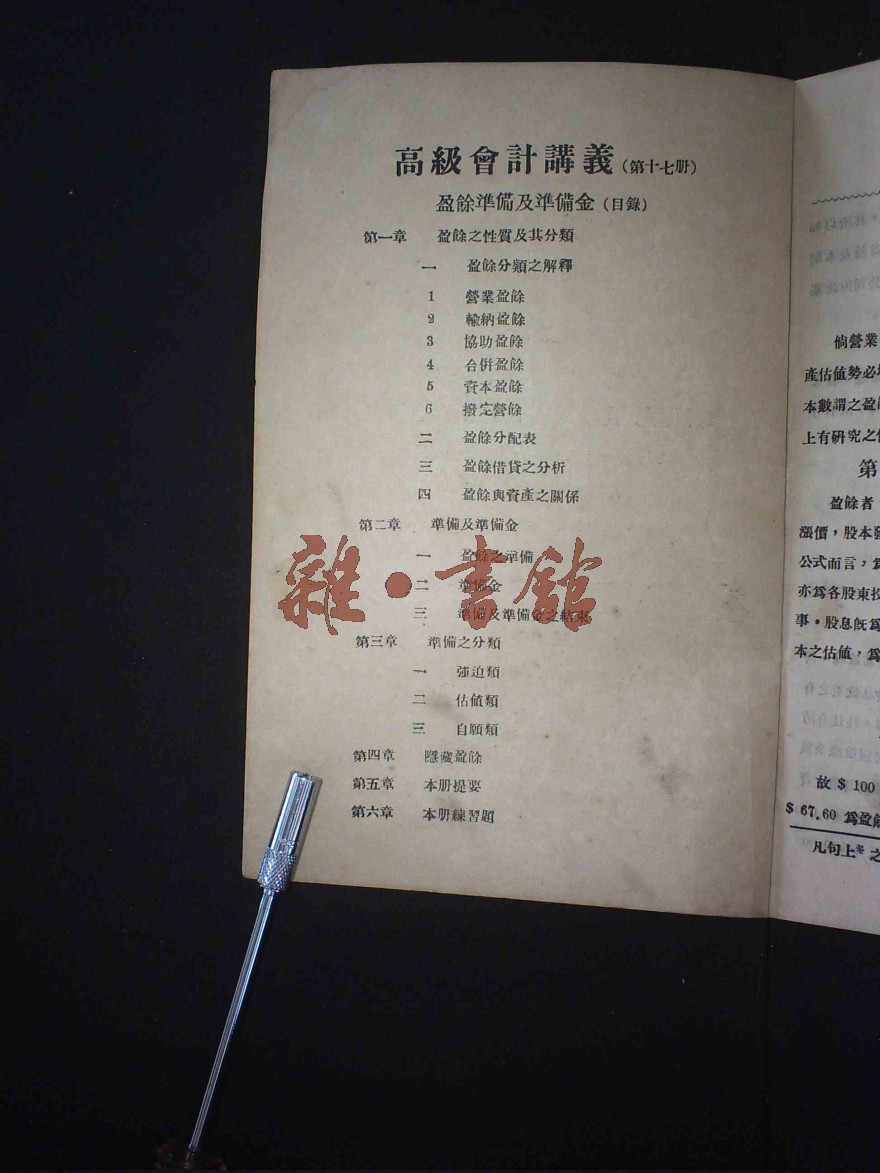 高級會計講義（第十七册）
盈餘準備及準備金（目錄）
第一章 盈餘之性質及其分類
一 盈餘分類之解釋
1 營業盈餘
2 輸納盈餘
3 協助盈餘
4 合併盈餘
5 資本盈餘
6 撥定營餘
二 盈餘分配表
三 盈餘借貸之分析
四 盈餘與資產之關係
第二章 準備及準備金
一 盈餘之準備
二 準備金
三 準備及準備金之結束
第三章 準備之分類
一 強迫類
二 估値類
三 自願類
第四章 隱藏盈餘
第五章 本册提要
第六章 本册練習題
雜·書館
倘營業
產估値勢必
本數謂之盈
上有研究之
第
盈餘者
漲價，股本
公式而言，
亦爲各股東投
事。股息旣爲
本之估値，爲
故 $ 100
$ 67.60 爲盈餘
凡句上 之